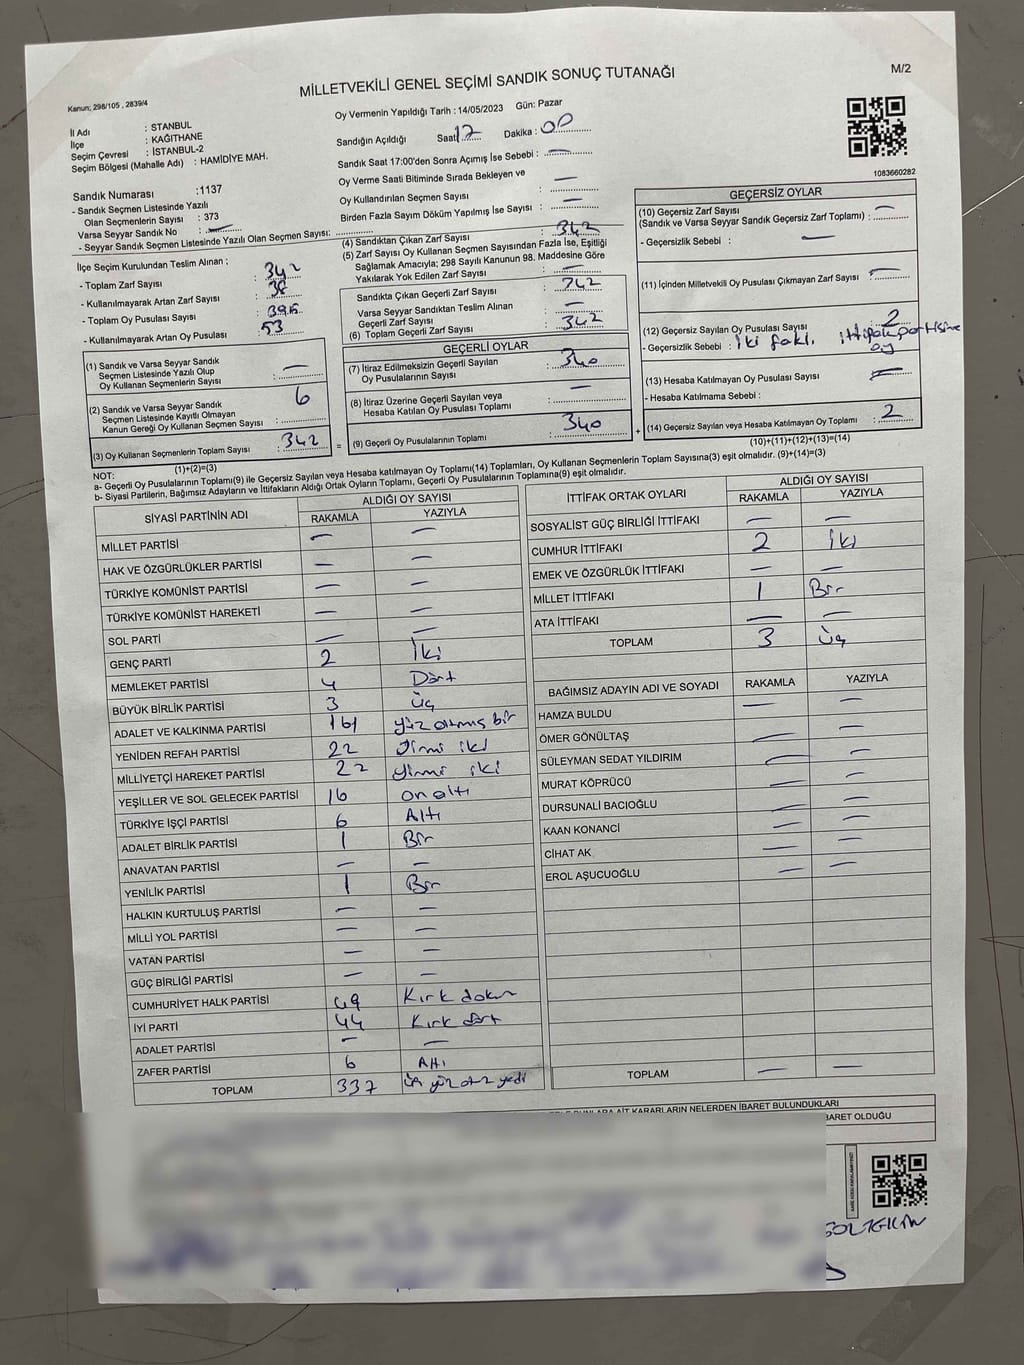 MİLLETVEKİLİ GENEL SEÇİMİ SANDIK SONUÇ TUTANAĞI
M/2
Kanun; 298/105 , 2839/4
Oy Vermenin Yapıldığı Tarih : 14/05/2023 Gün: Pazar
İl Adı : STANBUL
İlçe : KAĞITHANE
Seçim Çevresi : İSTANBUL-2
Seçim Bölgesi (Mahalle Adı) : HAMİDİYE MAH.
Sandığın Açıldığı Saat 17 Dakika : 00
Sandık Saat 17:00'den Sonra Açımış İse Sebebi : —
Oy Verme Saati Bitiminde Sırada Bekleyen ve
Oy Kullandırılan Seçmen Sayısı : —
Birden Fazla Sayım Döküm Yapılmış İse Sayısı : —
1083660282
Sandık Numarası :1137
- Sandık Seçmen Listesinde Yazılı
Olan Seçmenlerin Sayısı : 373
Varsa Seyyar Sandık No :
- Seyyar Sandık Seçmen Listesinde Yazılı Olan Seçmen Sayısı:
İlçe Seçim Kurulundan Teslim Alınan ;
- Toplam Zarf Sayısı :
- Kullanılmayarak Artan Zarf Sayısı : 38
- Toplam Oy Pusulası Sayısı : 395
- Kullanılmayarak Artan Oy Pusulası : 53
(1) Sandık ve Varsa Seyyar Sandık
Seçmen Listesinde Yazılı Olup
Oy Kullanan Seçmenlerin Sayısı : —
(2) Sandık ve Varsa Seyyar Sandık
Seçmen Listesinde Kayıtlı Olmayan
Kanun Gereği Oy Kullanan Seçmen Sayısı : 6
(3) Oy Kullanan Seçmenlerin Toplam Sayısı : 342
(1)+(2)=(3)
(4) Sandıktan Çıkan Zarf Sayısı : 342
(5) Zarf Sayısı Oy Kullanan Seçmen Sayısından Fazla İse, Eşitliği
Sağlamak Amacıyla; 298 Sayılı Kanunun 98. Maddesine Göre
Yakılarak Yok Edilen Zarf Sayısı : —
Sandıkta Çıkan Geçerli Zarf Sayısı : 342
Varsa Seyyar Sandıktan Teslim Alınan
Geçerli Zarf Sayısı : —
(6) Toplam Geçerli Zarf Sayısı : 342
GEÇERLİ OYLAR
(7) İtiraz Edilmeksizin Geçerli Sayılan
Oy Pusulalarının Sayısı : 340
(8) İtiraz Üzerine Geçerli Sayılan veya
Hesaba Katılan Oy Pusulası Toplamı : —
= (9) Geçerli Oy Pusulalarının Toplamı : 340
GEÇERSİZ OYLAR
(10) Geçersiz Zarf Sayısı
(Sandık ve Varsa Seyyar Sandık Geçersiz Zarf Toplamı) : —
- Geçersizlik Sebebi : —
(11) İçinden Milletvekili Oy Pusulası Çıkmayan Zarf Sayısı : —
(12) Geçersiz Sayılan Oy Pusulası Sayısı : 2
- Geçersizlik Sebebi : iki farklı ittifak partisine
oy
(13) Hesaba Katılmayan Oy Pusulası Sayısı : —
- Hesaba Katılmama Sebebi :
+ (14) Geçersiz Sayılan veya Hesaba Katılmayan Oy Toplamı : 2
(10)+(11)+(12)+(13)=(14)
NOT:
a- Geçerli Oy Pusulalarının Toplamı(9) ile Geçersiz Sayılan veya Hesaba katılmayan Oy Toplamı(14) Toplamları, Oy Kullanan Seçmenlerin Toplam Sayısına(3) eşit olmalıdır. (9)+(14)=(3)
b- Siyasi Partilerin, Bağımsız Adayların ve İttifakların Aldığı Ortak Oyların Toplamı, Geçerli Oy Pusulalarının Toplamına(9) eşit olmalıdır.
SİYASİ PARTİNİN ADI ALDIĞI OY SAYISI
RAKAMLA YAZIYLA
MİLLET PARTİSİ — —
HAK VE ÖZGÜRLÜKLER PARTİSİ — —
TÜRKİYE KOMÜNİST PARTİSİ — —
TÜRKİYE KOMÜNİST HAREKETİ — —
SOL PARTİ — —
GENÇ PARTİ 2 İki
MEMLEKET PARTİSİ 4 Dört
BÜYÜK BİRLİK PARTİSİ 3 üç
ADALET VE KALKINMA PARTİSİ 161 yüz altmış bir
YENİDEN REFAH PARTİSİ 22 Yirmi iki
MİLLİYETÇİ HAREKET PARTİSİ 22 Yirmi iki
YEŞİLLER VE SOL GELECEK PARTİSİ 16 on altı
TÜRKİYE İŞÇİ PARTİSİ 6 Altı
ADALET BİRLİK PARTİSİ 1 Bir
ANAVATAN PARTİSİ — —
YENİLİK PARTİSİ 1 Bir
HALKIN KURTULUŞ PARTİSİ — —
MİLLİ YOL PARTİSİ — —
VATAN PARTİSİ — —
GÜÇ BİRLİĞİ PARTİSİ — —
CUMHURİYET HALK PARTİSİ 49 Kırk dokuz
İYİ PARTİ 44 Kırk dört
ADALET PARTİSİ — —
ZAFER PARTİSİ 6 Altı
TOPLAM 337 üç yüz otuz yedi
İTTİFAK ORTAK OYLARI ALDIĞI OY SAYISI
RAKAMLA YAZIYLA
SOSYALİST GÜÇ BİRLİĞİ İTTİFAKI — —
CUMHUR İTTİFAKI 2 İki
EMEK VE ÖZGÜRLÜK İTTİFAKI — —
MİLLET İTTİFAKI 1 Bir
ATA İTTİFAKI — —
TOPLAM 3 üç
BAĞIMSIZ ADAYIN ADI VE SOYADI RAKAMLA YAZIYLA
HAMZA BULDU — —
ÖMER GÖNÜLTAŞ — —
SÜLEYMAN SEDAT YILDIRIM — —
MURAT KÖPRÜCÜ — —
DURSUNALİ BACIOĞLU — —
KAAN KONANCİ — —
CİHAT AK — —
EROL AŞUCUOĞLU — —
TOPLAM — —
AİT KARARLARIN NELERDEN İBARET BULUNDUKLARI
BARET OLDUĞU